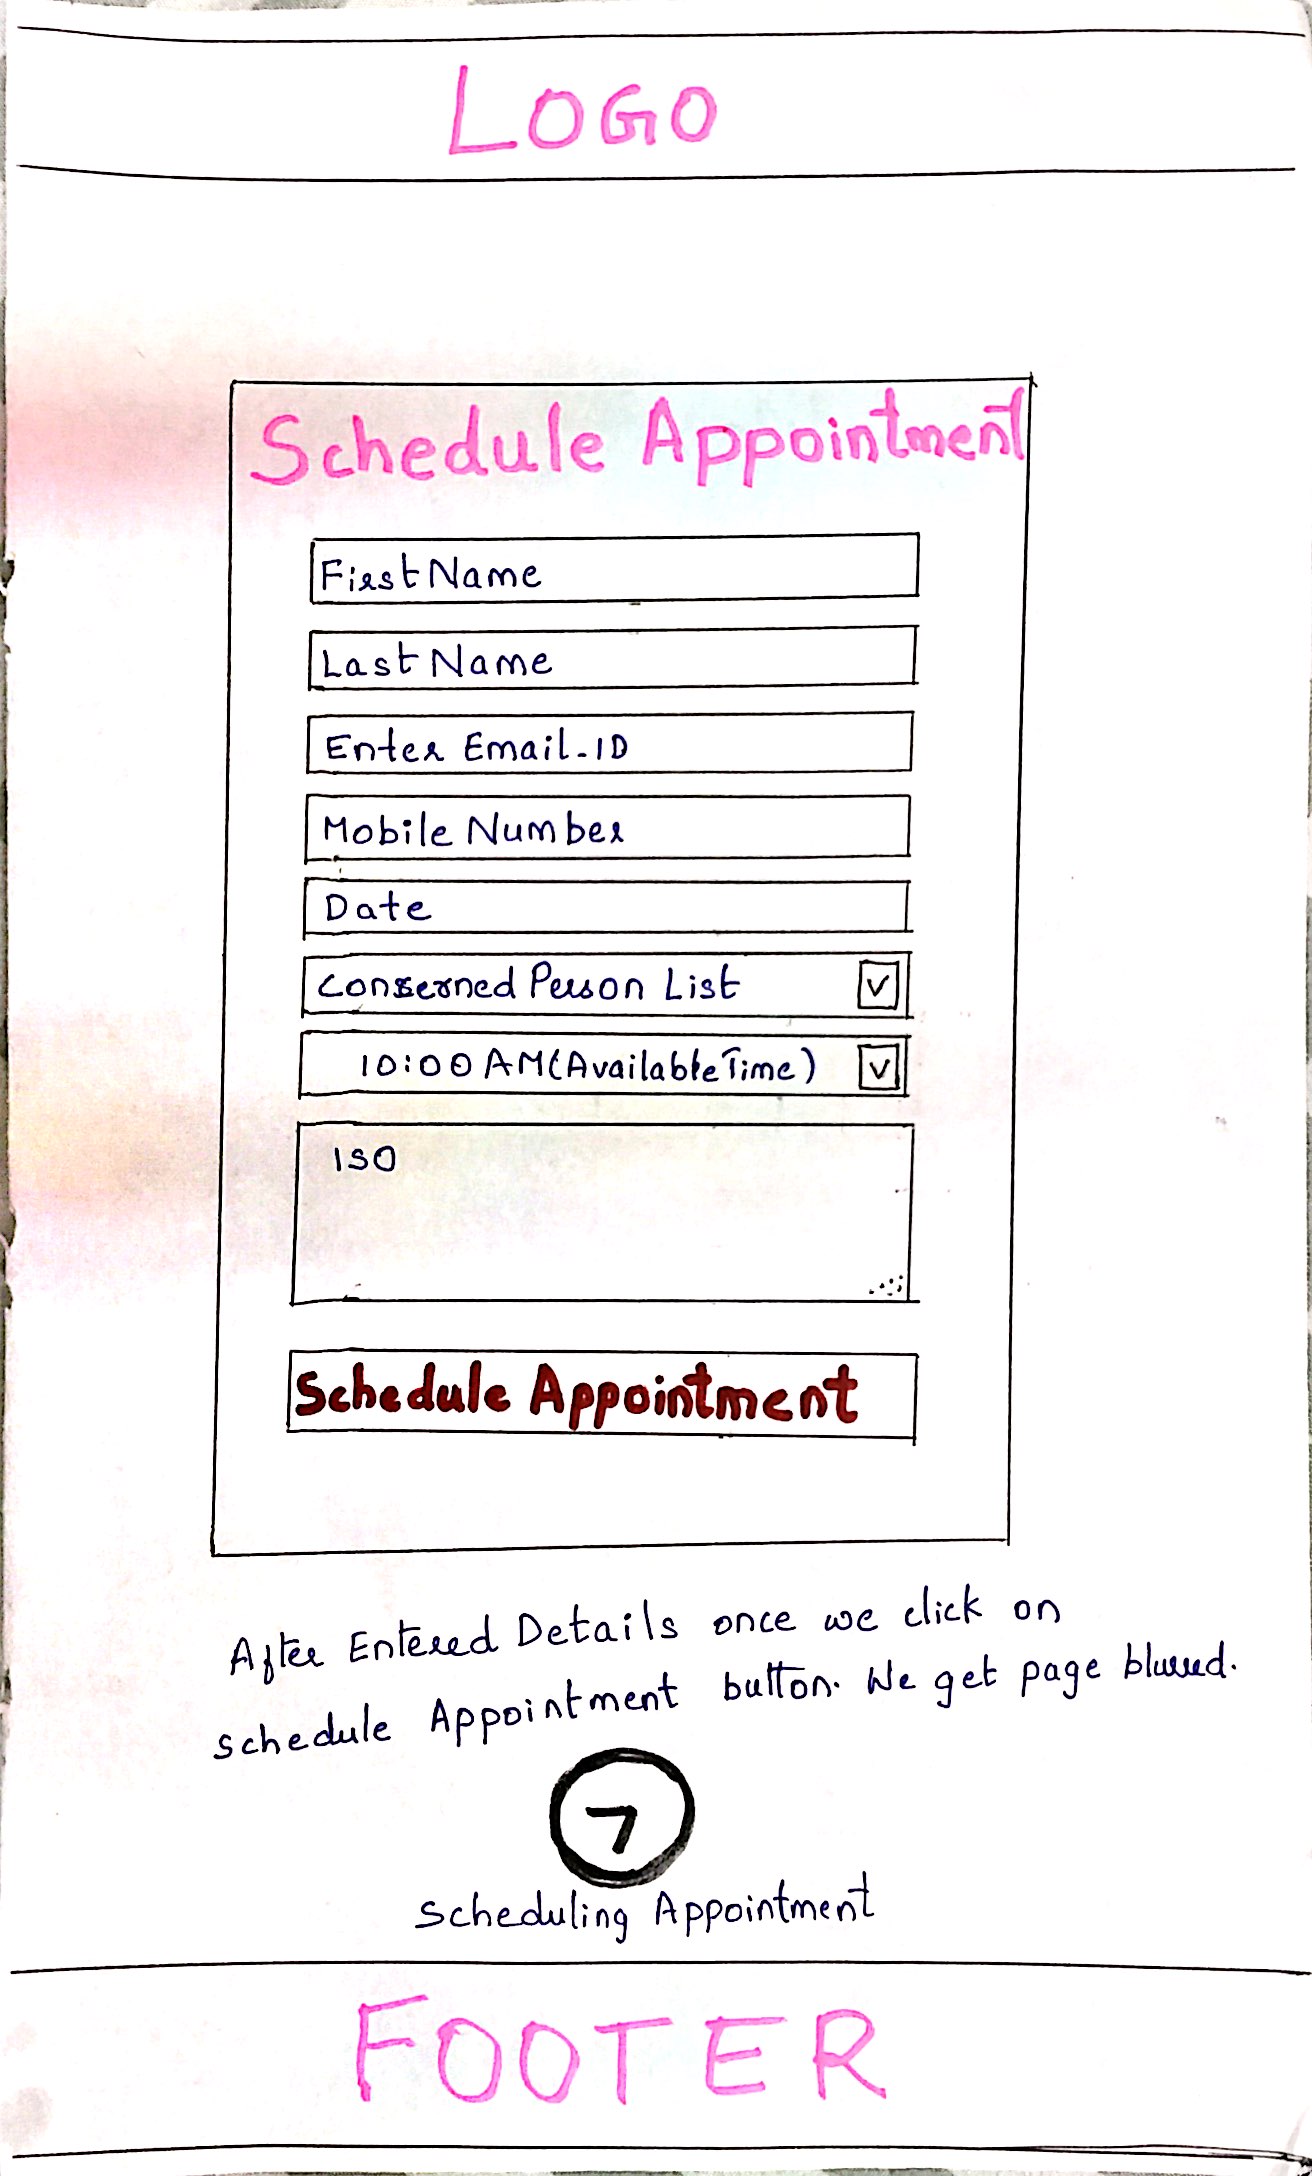 LOGO
Schedule Appointment
First Name
Last Name
Enter Email-ID
Mobile Number
Date
Conserned Person List V
10:00 AM (Available Time) V
ISO
Schedule Appointment
After Entered Details once we click on
schedule Appointment button. We get page blurred.
7
Scheduling Appointment
FOOTER